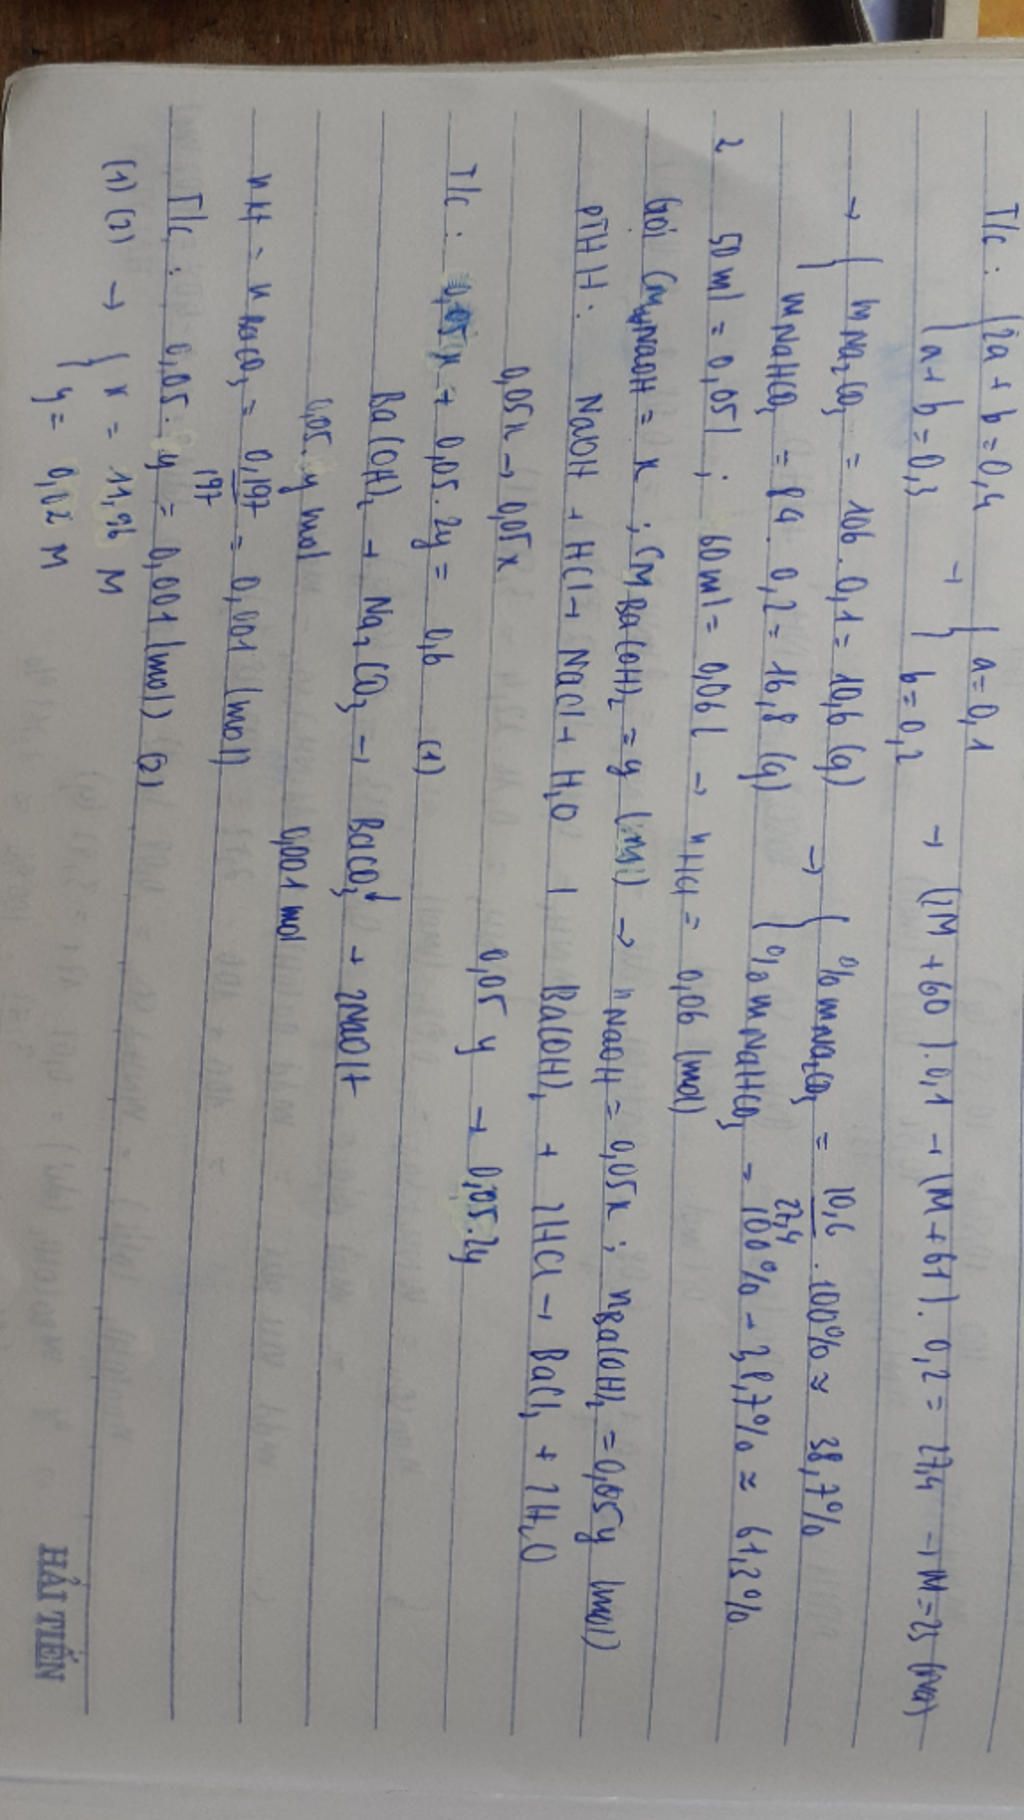 T/c : { 2a + b = 0,4 → { a = 0,1
{ a + b = 0,3 { b = 0,2 → (2M + 60).0,1 + (M + 61). 0,2 = 27,4 → M = 23 (Na)
→ { mNa2CO3 = 106 . 0,1 = 10,6 (g) → { % mNa2CO3 = 10,6/27,4 . 100% ≈ 38,7%
{ mNaHCO3 = 84 . 0,2 = 16,8 (g) { % mNaHCO3 = 100% - 38,7% ≈ 61,3%
2 50ml = 0,05l ; 60ml = 0,06l → nHCl = 0,06 (mol)
Gọi CM NaOH = x ; CM Ba(OH)2 = y (M) → nNaOH = 0,05x ; nBa(OH)2 = 0,05y (mol)
PTHH : NaOH + HCl → NaCl + H2O | Ba(OH)2 + 2HCl → BaCl2 + 2H2O
0,05x → 0,05x 0,05 y → 0,05.2y
T/c : 0,05x + 0,05. 2y = 0,6 (1)
Ba(OH)2 + Na2CO3 → BaCO3↓ + 2NaOH
0,05. y mol 0,001 mol
n↓ = nBaCO3 = 0,197/197 = 0,001 (mol)
T/c : 0,05. y = 0,001 (mol) (2)
(1) (2) → { x = 11,96 M
{ y = 0,02 M
HẢI TIẾN